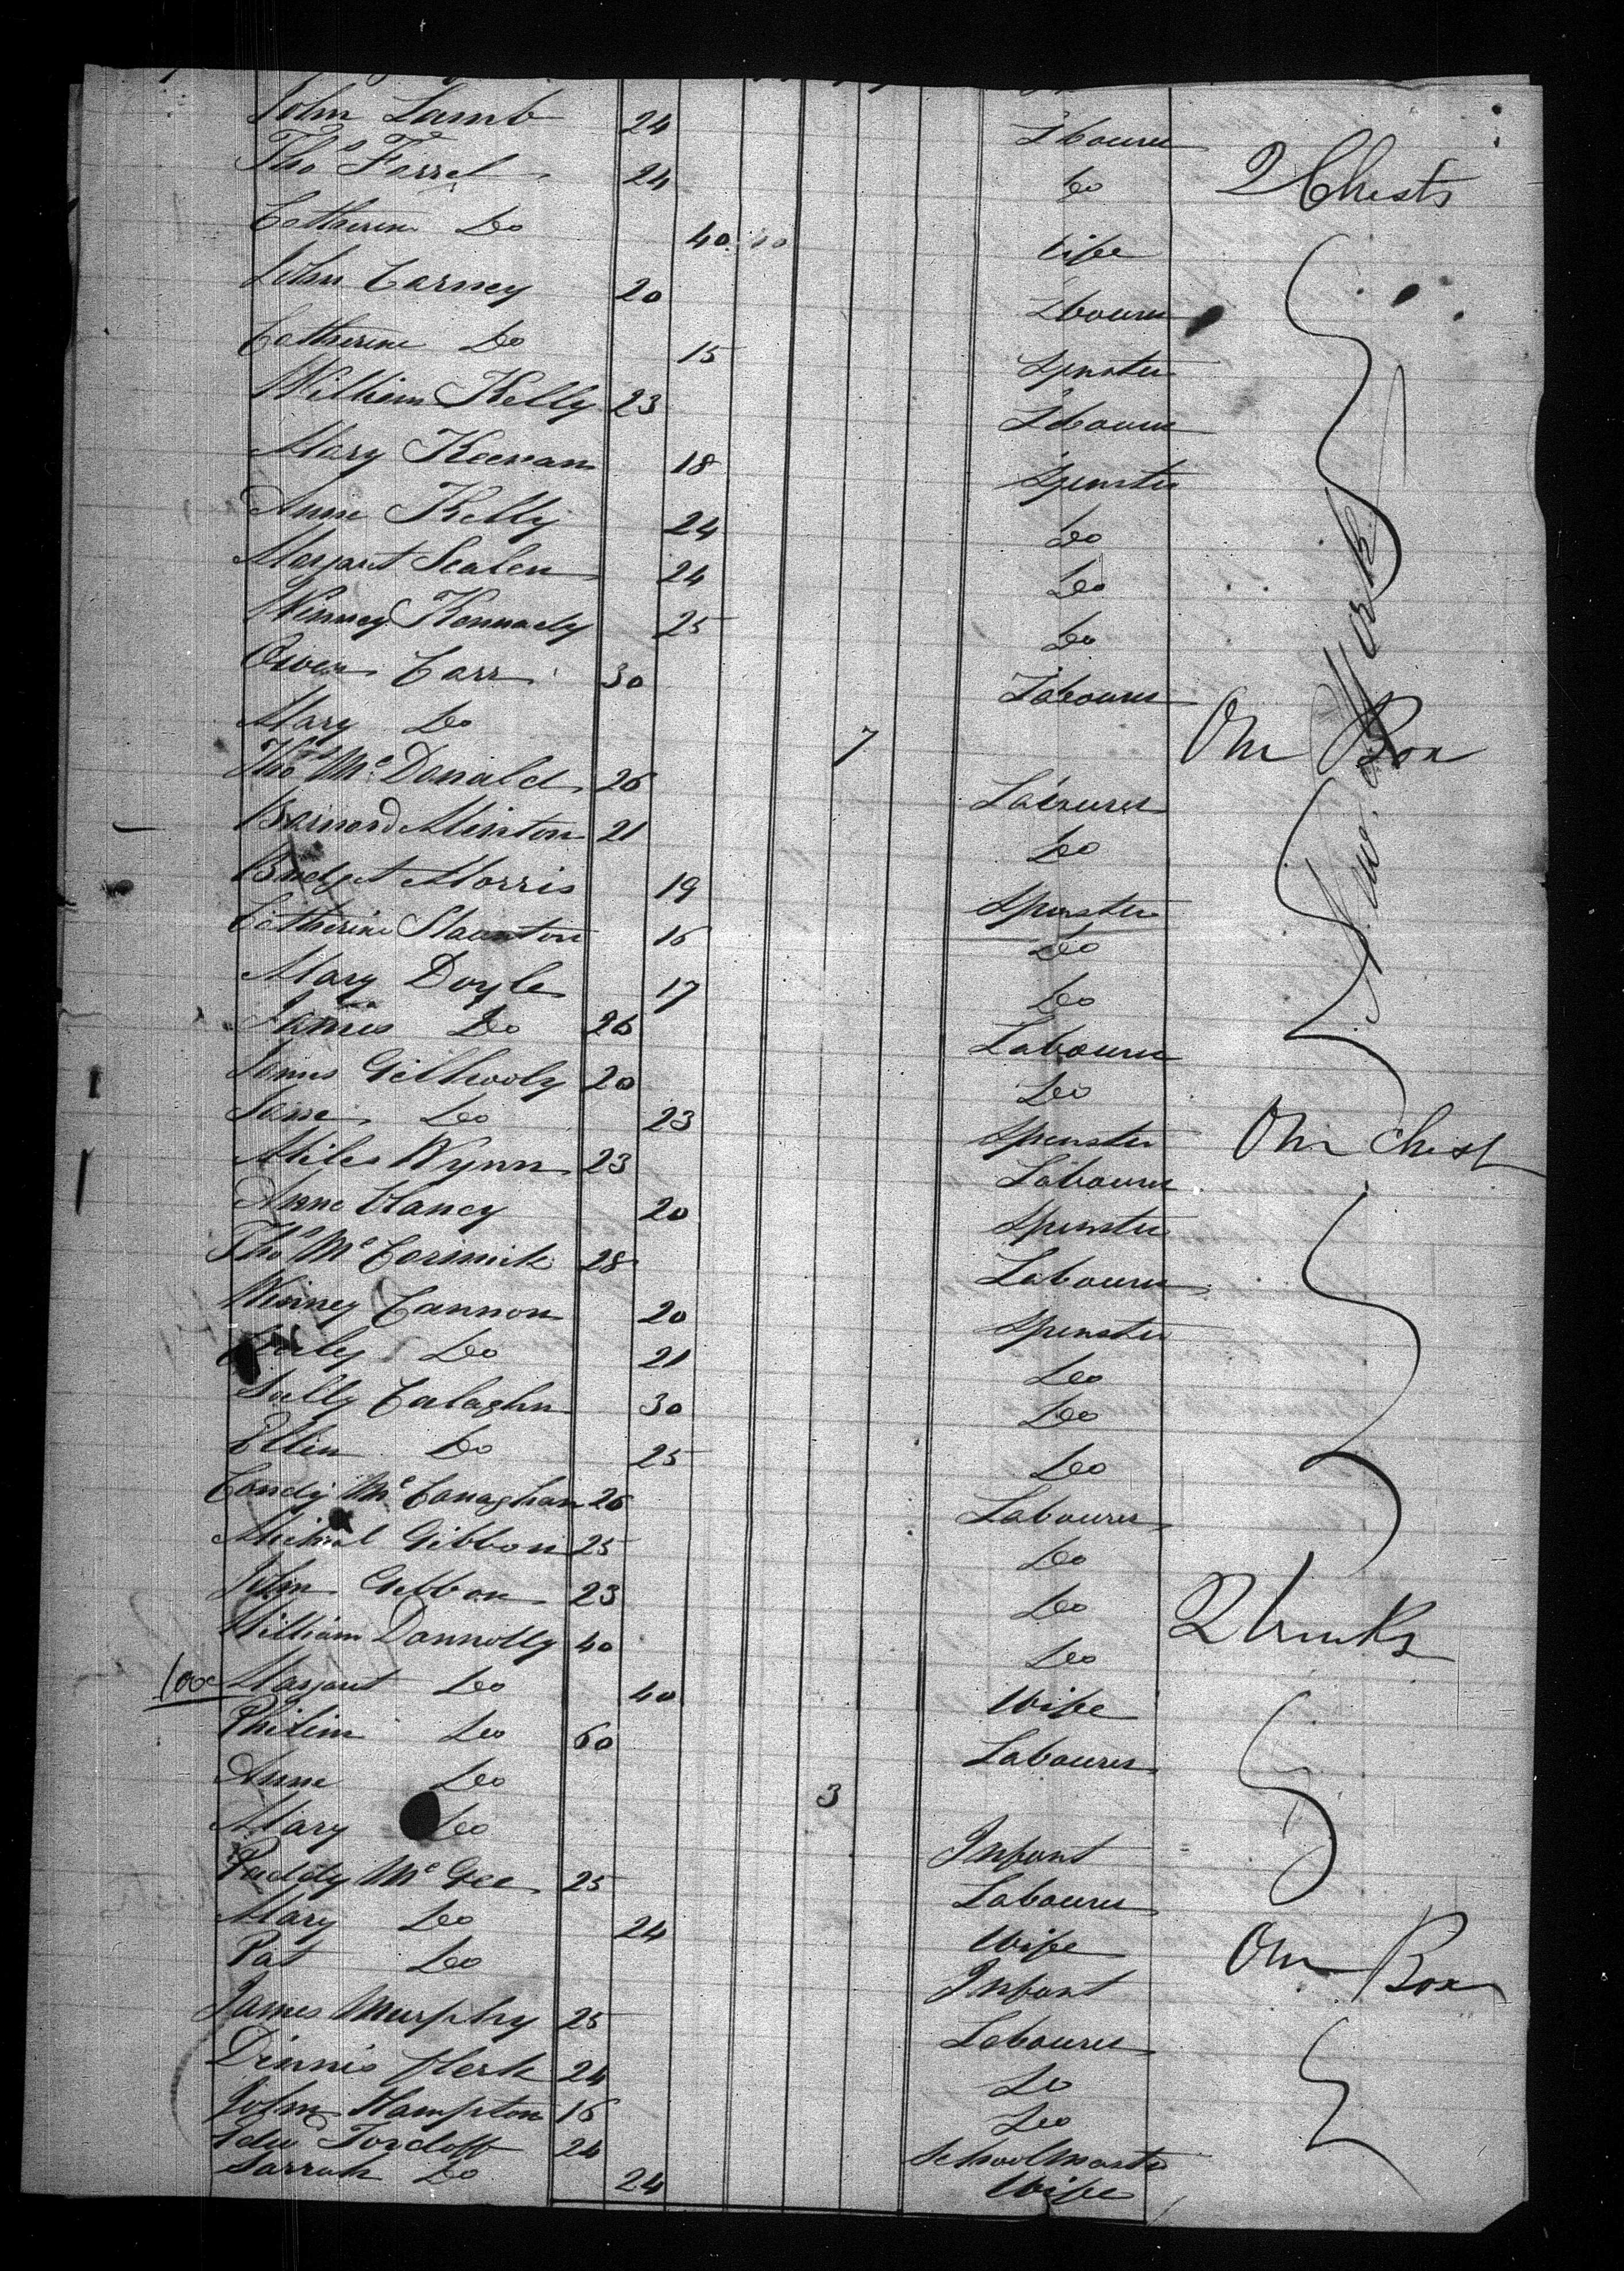 John Lamb 24 Labourer
Tho^s Farrel 24 Do 2 Chests
Catherine Do 40 Wife
John Carney 20 Labourer
Catherine Do 15 Spinster
William Kelly 23 Labourer
Mary Keenan 18 Spinster
Anne Kelly 24 Do
Margaret Scalen 24 Do
Winney Kennady 25 Do
Owen Carr 30 Labourer
Mary Do 7 One Box
Tho^s Mc Donald 26 Labourer
Barnard Minton 21 Do
Bridget Morris 19 Spinster
Catherine Staunton 16 Do
Mary Doyle 17 Do
James Do 26 Labourer
James Gilhooly 20 Do
Jane Do 23 Spinster One Chest
Miles Wynn 23 Labourer
Anne Clancy 20 Spinster
Tho^s Mc Cormick 28 Labourer
Winney Cannon 20 Spinster
Do 21 Do
Sally Calaghn 30 Do
Ellin Do 25 Do
Condy Mc Conaghan 26 Labourer
Michal Gibbon 25 Do
John Gibbon 23 Do
William Donnolly 40 Do 2 Trunks
100 Margaret Do 40 Wife
Philim Do 60 Labourer
Anne Do 3
Mary Do Infant
Paddy Mc Gee 25 Labourer
Mary Do 24 Wife
Pat Do Infant One Box
James Murphy 25 Labourer
Dinnis Clerk 24 Do
John Hampton 16 Do
Tordoff 24 Schoolmaster
Sarrah Do 24 Wife
New York